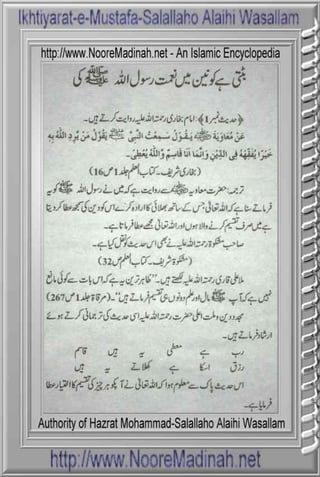 Ikhtiyarat-e-Mustafa-Salallaho Alaihi Wasallam
http://www.NooreMadinah.net - An Islamic Encyclopedia
بٹتی ہے کونین میں نعمت رسول اللہ ﷺ کی
﴿حدیث نمبر 1﴾: امام بخاری رحمۃ اللہ علیہ روایت کرتے ہیں۔
عَنْ مُعَاوِيَةَ يَقُولُ سَمِعْتُ النَّبِيَّ ﷺ يَقُولُ مَنْ يُّرِدِ اللهُ بِهِ
خَيْرًا يُفَقِّهْهُ فِي الدِّيْنِ وَاِنَّمَا اَنَا قَاسِمٌ وَّاللهُ يُعْطِيْ۔
(بخاری شریف۔ کتاب العلم جلد 1 ص 16)
ترجمہ: حضرت معاویہ سے روایت ہے کہ میں نے رسول اللہ ﷺ کو یہ
فرماتے سنا ہے کہ اللہ تعالیٰ جس کے ساتھ بھلائی کا ارادہ کرے اس کو دین کی سمجھ عطا کر دیتا
ہے میں صرف تقسیم کرنے والا ہوں اور اللہ تعالیٰ مجھے عطا فرماتا ہے۔
صاحب مشکوٰۃ رحمۃ اللہ علیہ نے بھی اس حدیث کو نقل کیا ہے۔
(مشکوٰۃ شریف۔ کتاب العلم ص 32)
ملا علی قاری رحمۃ اللہ علیہ لکھتے ہیں۔ "ظاہر ترین یہ ہے کہ اس بات سے کوئی مانع
نہیں ہے کہ آپ ﷺ مال اور علم دونوں ہی تقسیم فرماتے ہیں"۔ (مرقاۃ جلد 1 ص 267)
مجدد دین و ملت اعلیٰ حضرت رحمۃ اللہ علیہ اسی حدیث کی ترجمانی کرتے ہوئے
ارشاد فرماتے ہیں۔
رب ہے معطی یہ ہیں قاسم
رزق اسکا ہے کھلاتے یہ ہیں
اس حدیث پاک سے معلوم ہوا کہ اللہ تعالیٰ نے آپکو ہر چیز کی تقسیم کا اختیار عطا
فرمایا ہے۔
Authority of Hazrat Mohammad-Salallaho Alaihi Wasallam
http://www.NooreMadinah.net